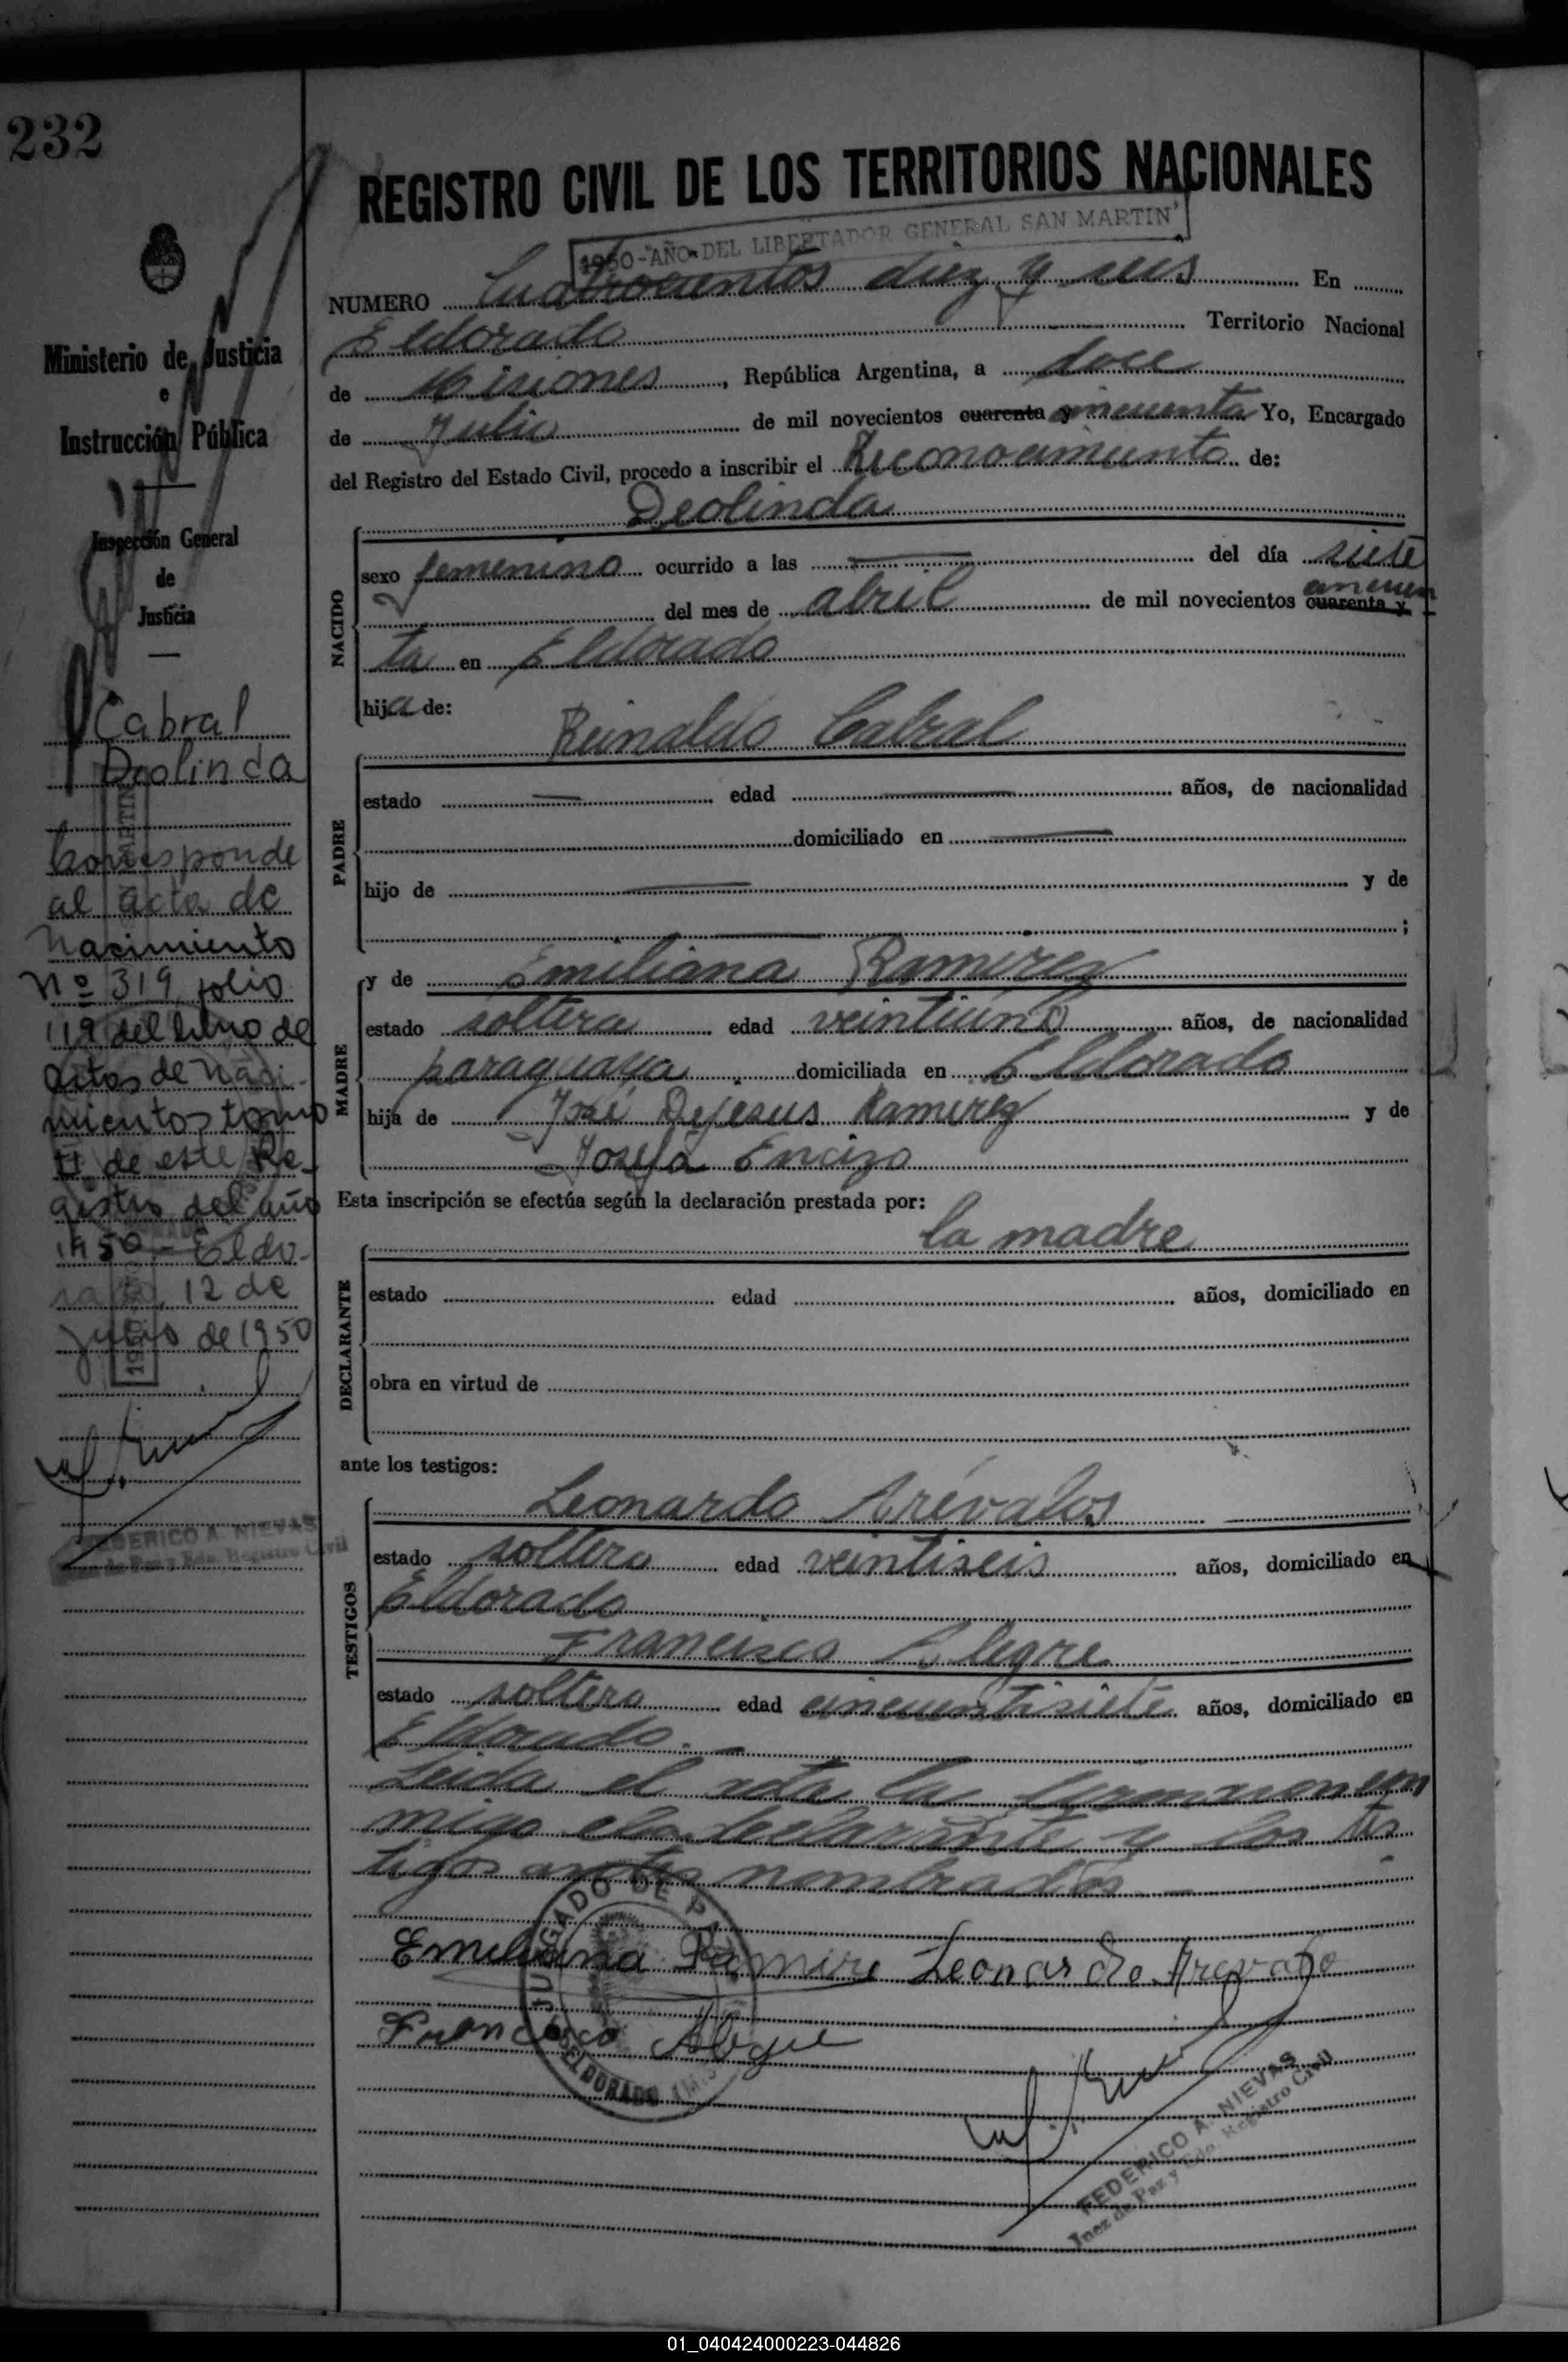 232
Ministerio de Justicia
e
Instrucción Pública
Inspección General
de
Justicia
Cabral
Deolinda
Corresponde
al acta de
nacimiento
Nº 319, folio
119 del libro de
actas de naci-
mientos tomo
II de este Re-
gistro del año
1950 - Eldo-
rado, 12 de
julio de 1950
FEDERICO A. NIEVAS
de Paz y Edo. Registro Civil
REGISTRO CIVIL DE LOS TERRITORIOS NACIONALES
1950 - "AÑO DEL LIBERTADOR GENERAL SAN MARTIN"
NUMERO Cuatrocientos diez y seis En
Eldorado Territorio Nacional
de Misiones, República Argentina, a doce
de Julio de mil novecientos cuarenta y cincuenta Yo, Encargado
del Registro del Estado Civil, procedo a inscribir el Reconocimiento de:
Deolinda
NACIDO
sexo femenino ocurrido a las del día siete
del mes de abril de mil novecientos cuarenta y cincuen
ta en Eldorado
hija de:
Reinaldo Cabral
PADRE
estado edad años, de nacionalidad
domiciliado en
hijo de y de
;
y de Emiliana Ramirez
MADRE
estado soltera edad veintiuno años, de nacionalidad
paraguaya domiciliada en Eldorado
hija de José Dejesus Ramirez y de
Josefa Encizo
Esta inscripción se efectúa según la declaración prestada por:
la madre
DECLARANTE
estado edad años, domiciliado en
obra en virtud de
ante los testigos:
TESTIGOS
Leonardo Arévalos
estado soltero edad veintiseis años, domiciliado en
Eldorado
Francisco Alegre
estado soltero edad cincuentisiete años, domiciliado en
Eldorado.
Leida el acta la firmaron con
migo la declarante y los tes
tigos antes nombrados
Emiliana Ramire Leonardo Arevalo
Francisco Alegre
JUZGADO DE PAZ
ELDORADO (MIS.)
FEDERICO A. NIEVAS
Juez de Paz y Edo. Registro Civil
01_040424000223-044826